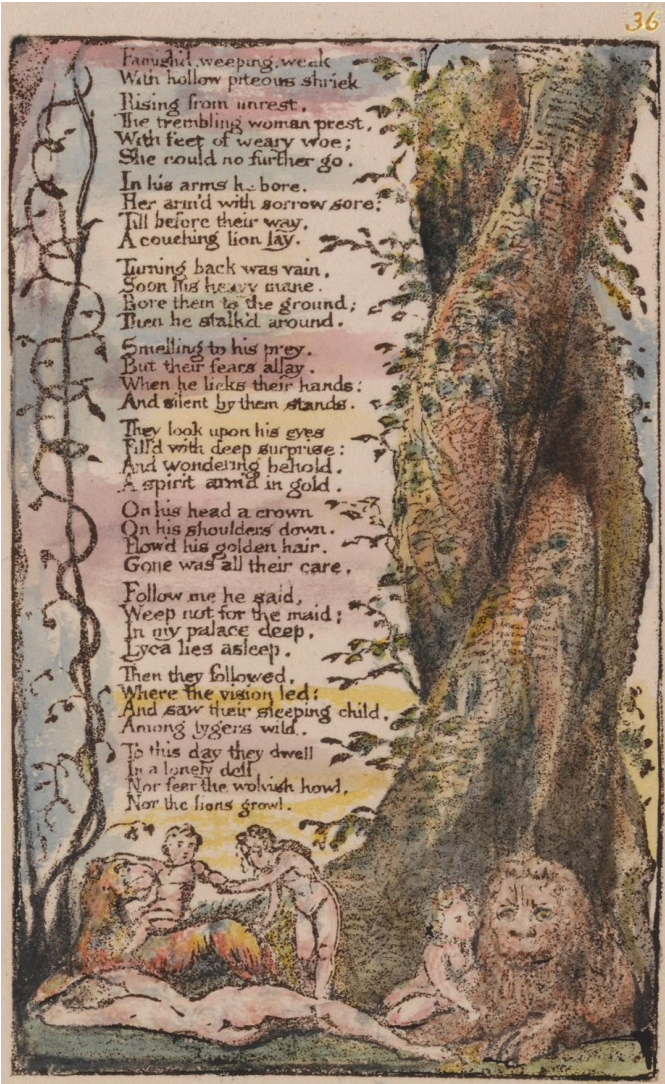 36
Famish'd, weeping, weak
With hollow piteous shriek
Rising from unrest,
The trembling woman prest,
With feet of weary woe;
She could no further go.
In his arms he bore.
Her arm'd with sorrow sore;
Till before their way,
A couching lion lay.
Turning back was vain,
Soon his heavy mane.
Bore them to the ground;
Then he stalk'd around.
Smelling to his prey.
But their fears allay.
When he licks their hands:
And silent by them stands.
They look upon his eyes
Fill'd with deep surprise:
And wondering behold.
A spirit arm'd in gold.
On his head a crown
On his shoulders down.
Flow'd his golden hair.
Gone was all their care.
Follow me he said,
Weep not for the maid;
In my palace deep.
Lyca lies asleep.
Then they followed,
Where the vision led:
And saw their sleeping child,
Among tygers wild.
To this day they dwell
In a lonely dell
Nor fear the wolvish howl,
Nor the lions growl.